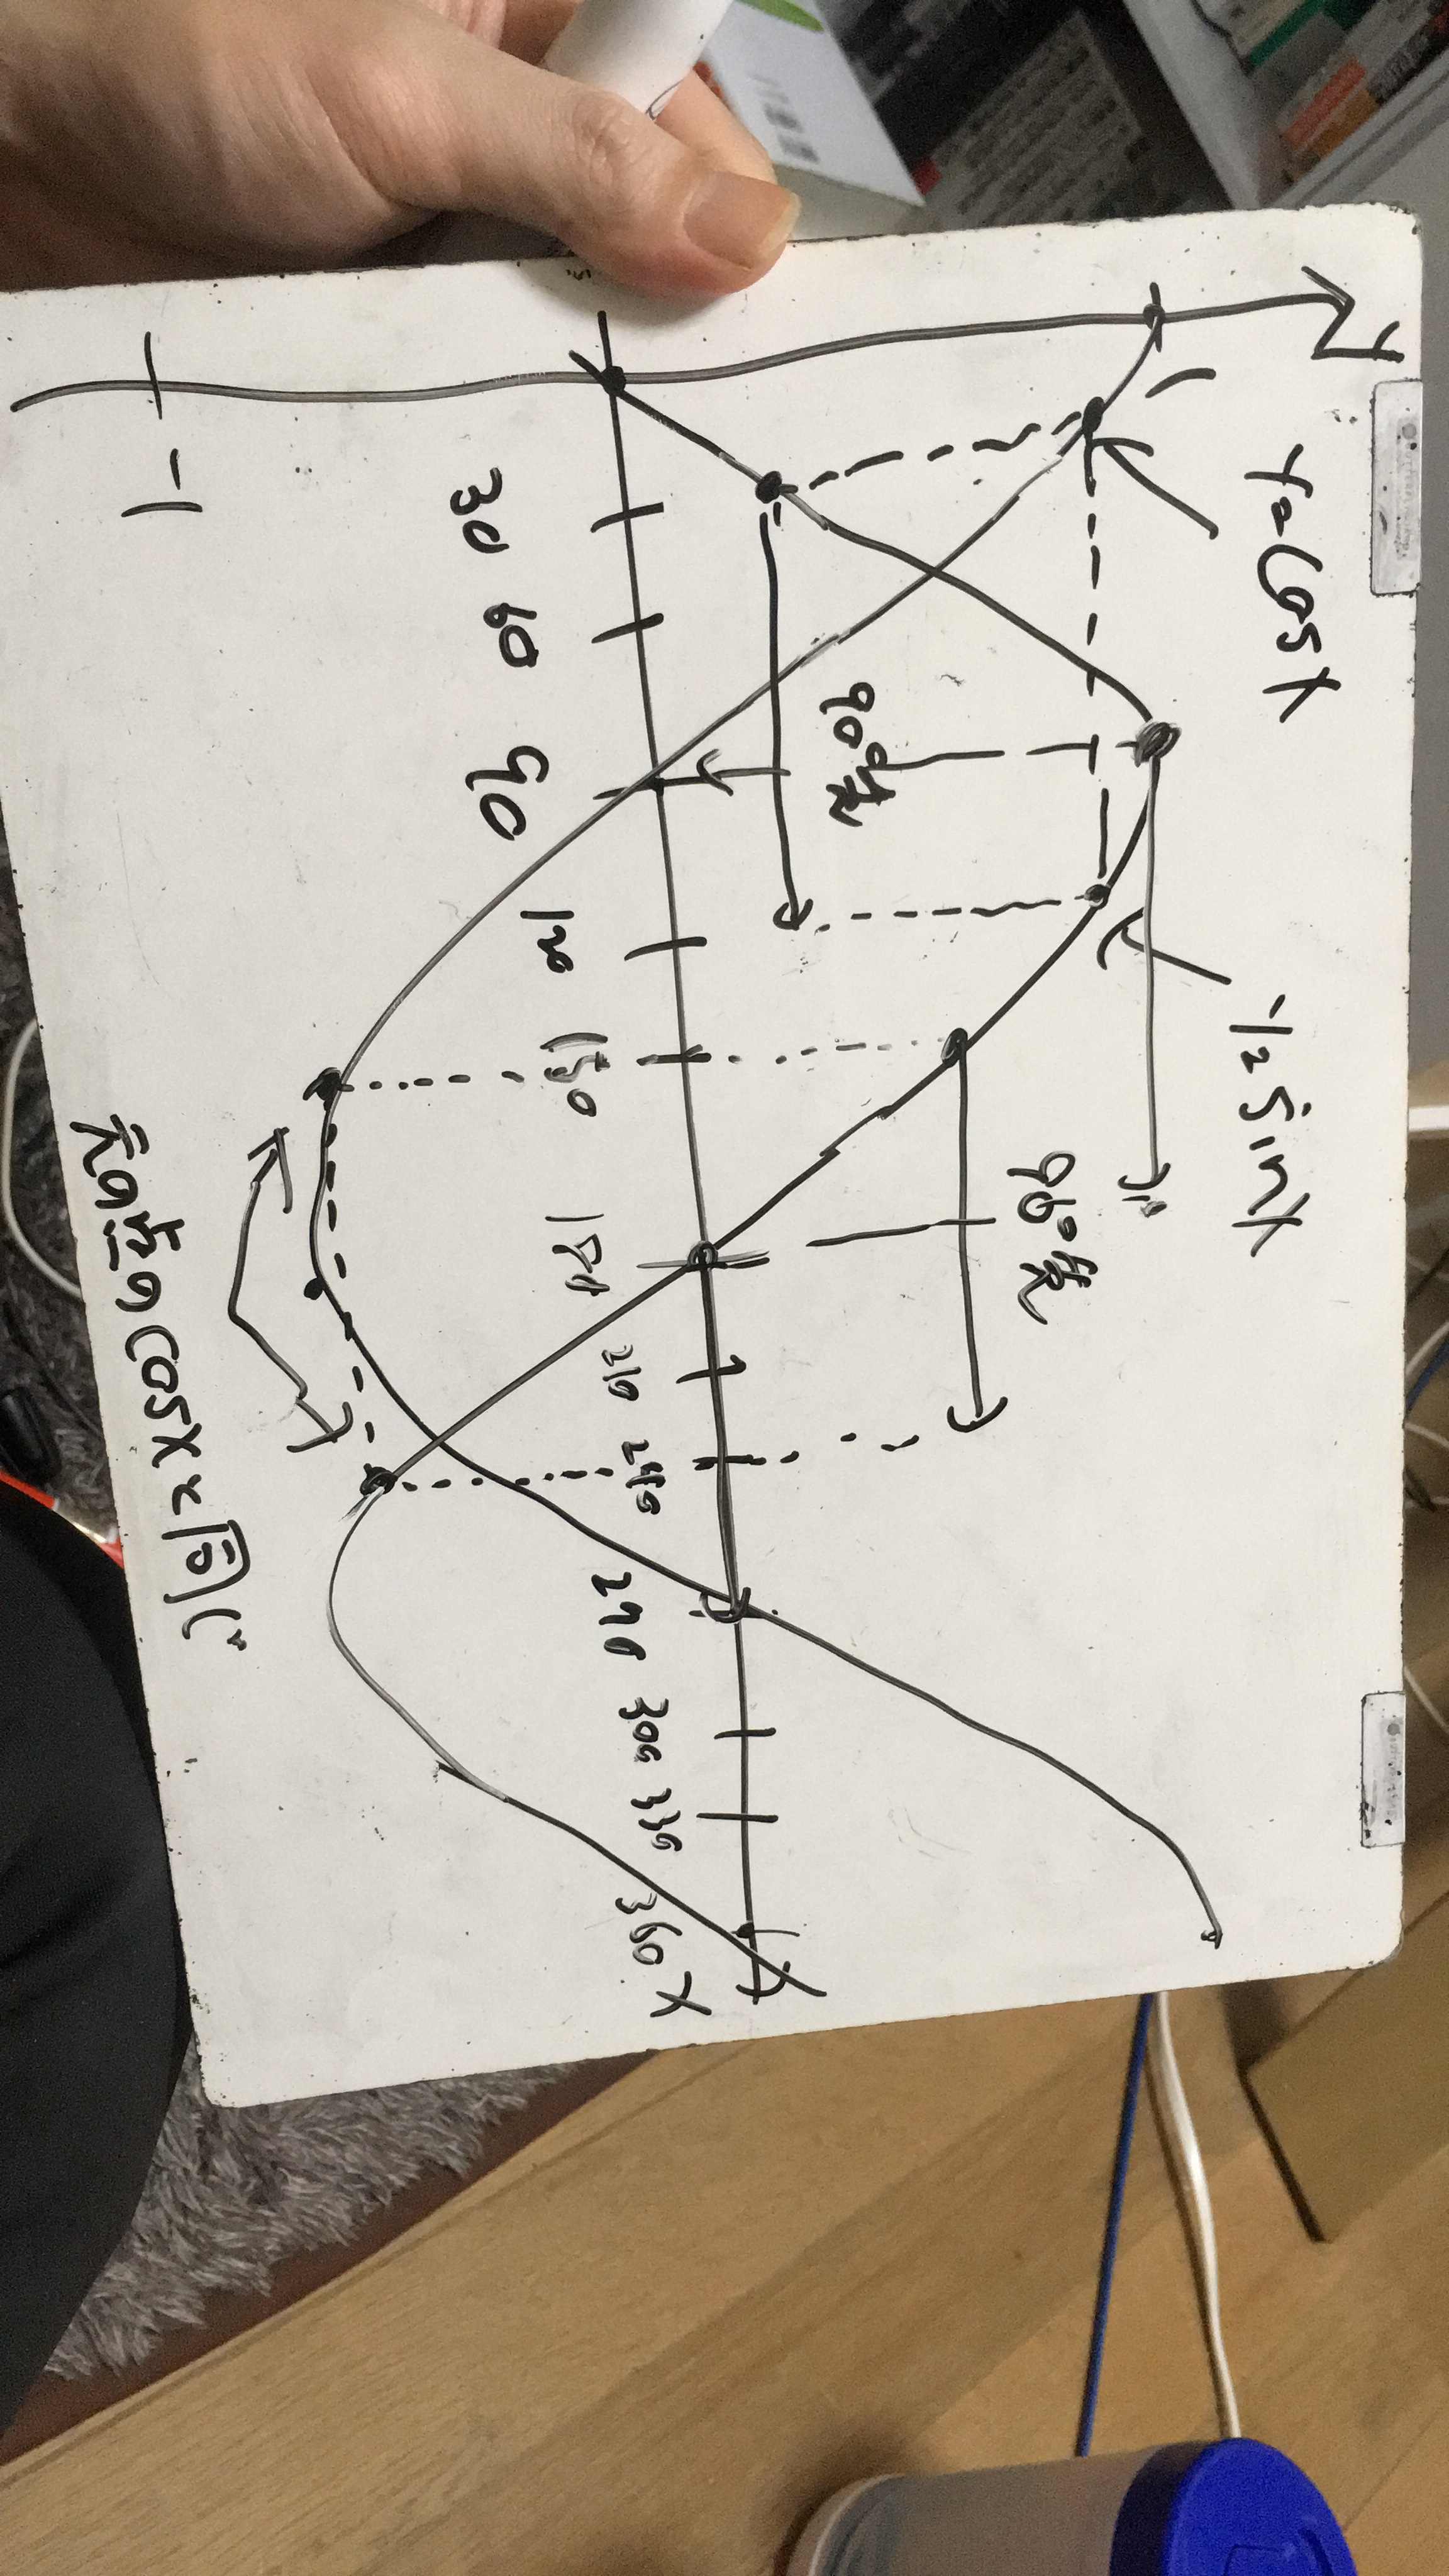 y
y=cosx
y=sinx
1
90°先
90°先
30 60 90 120 150 180 210 240 270 300 330 360 x
-1
元の点のcosxと同じ